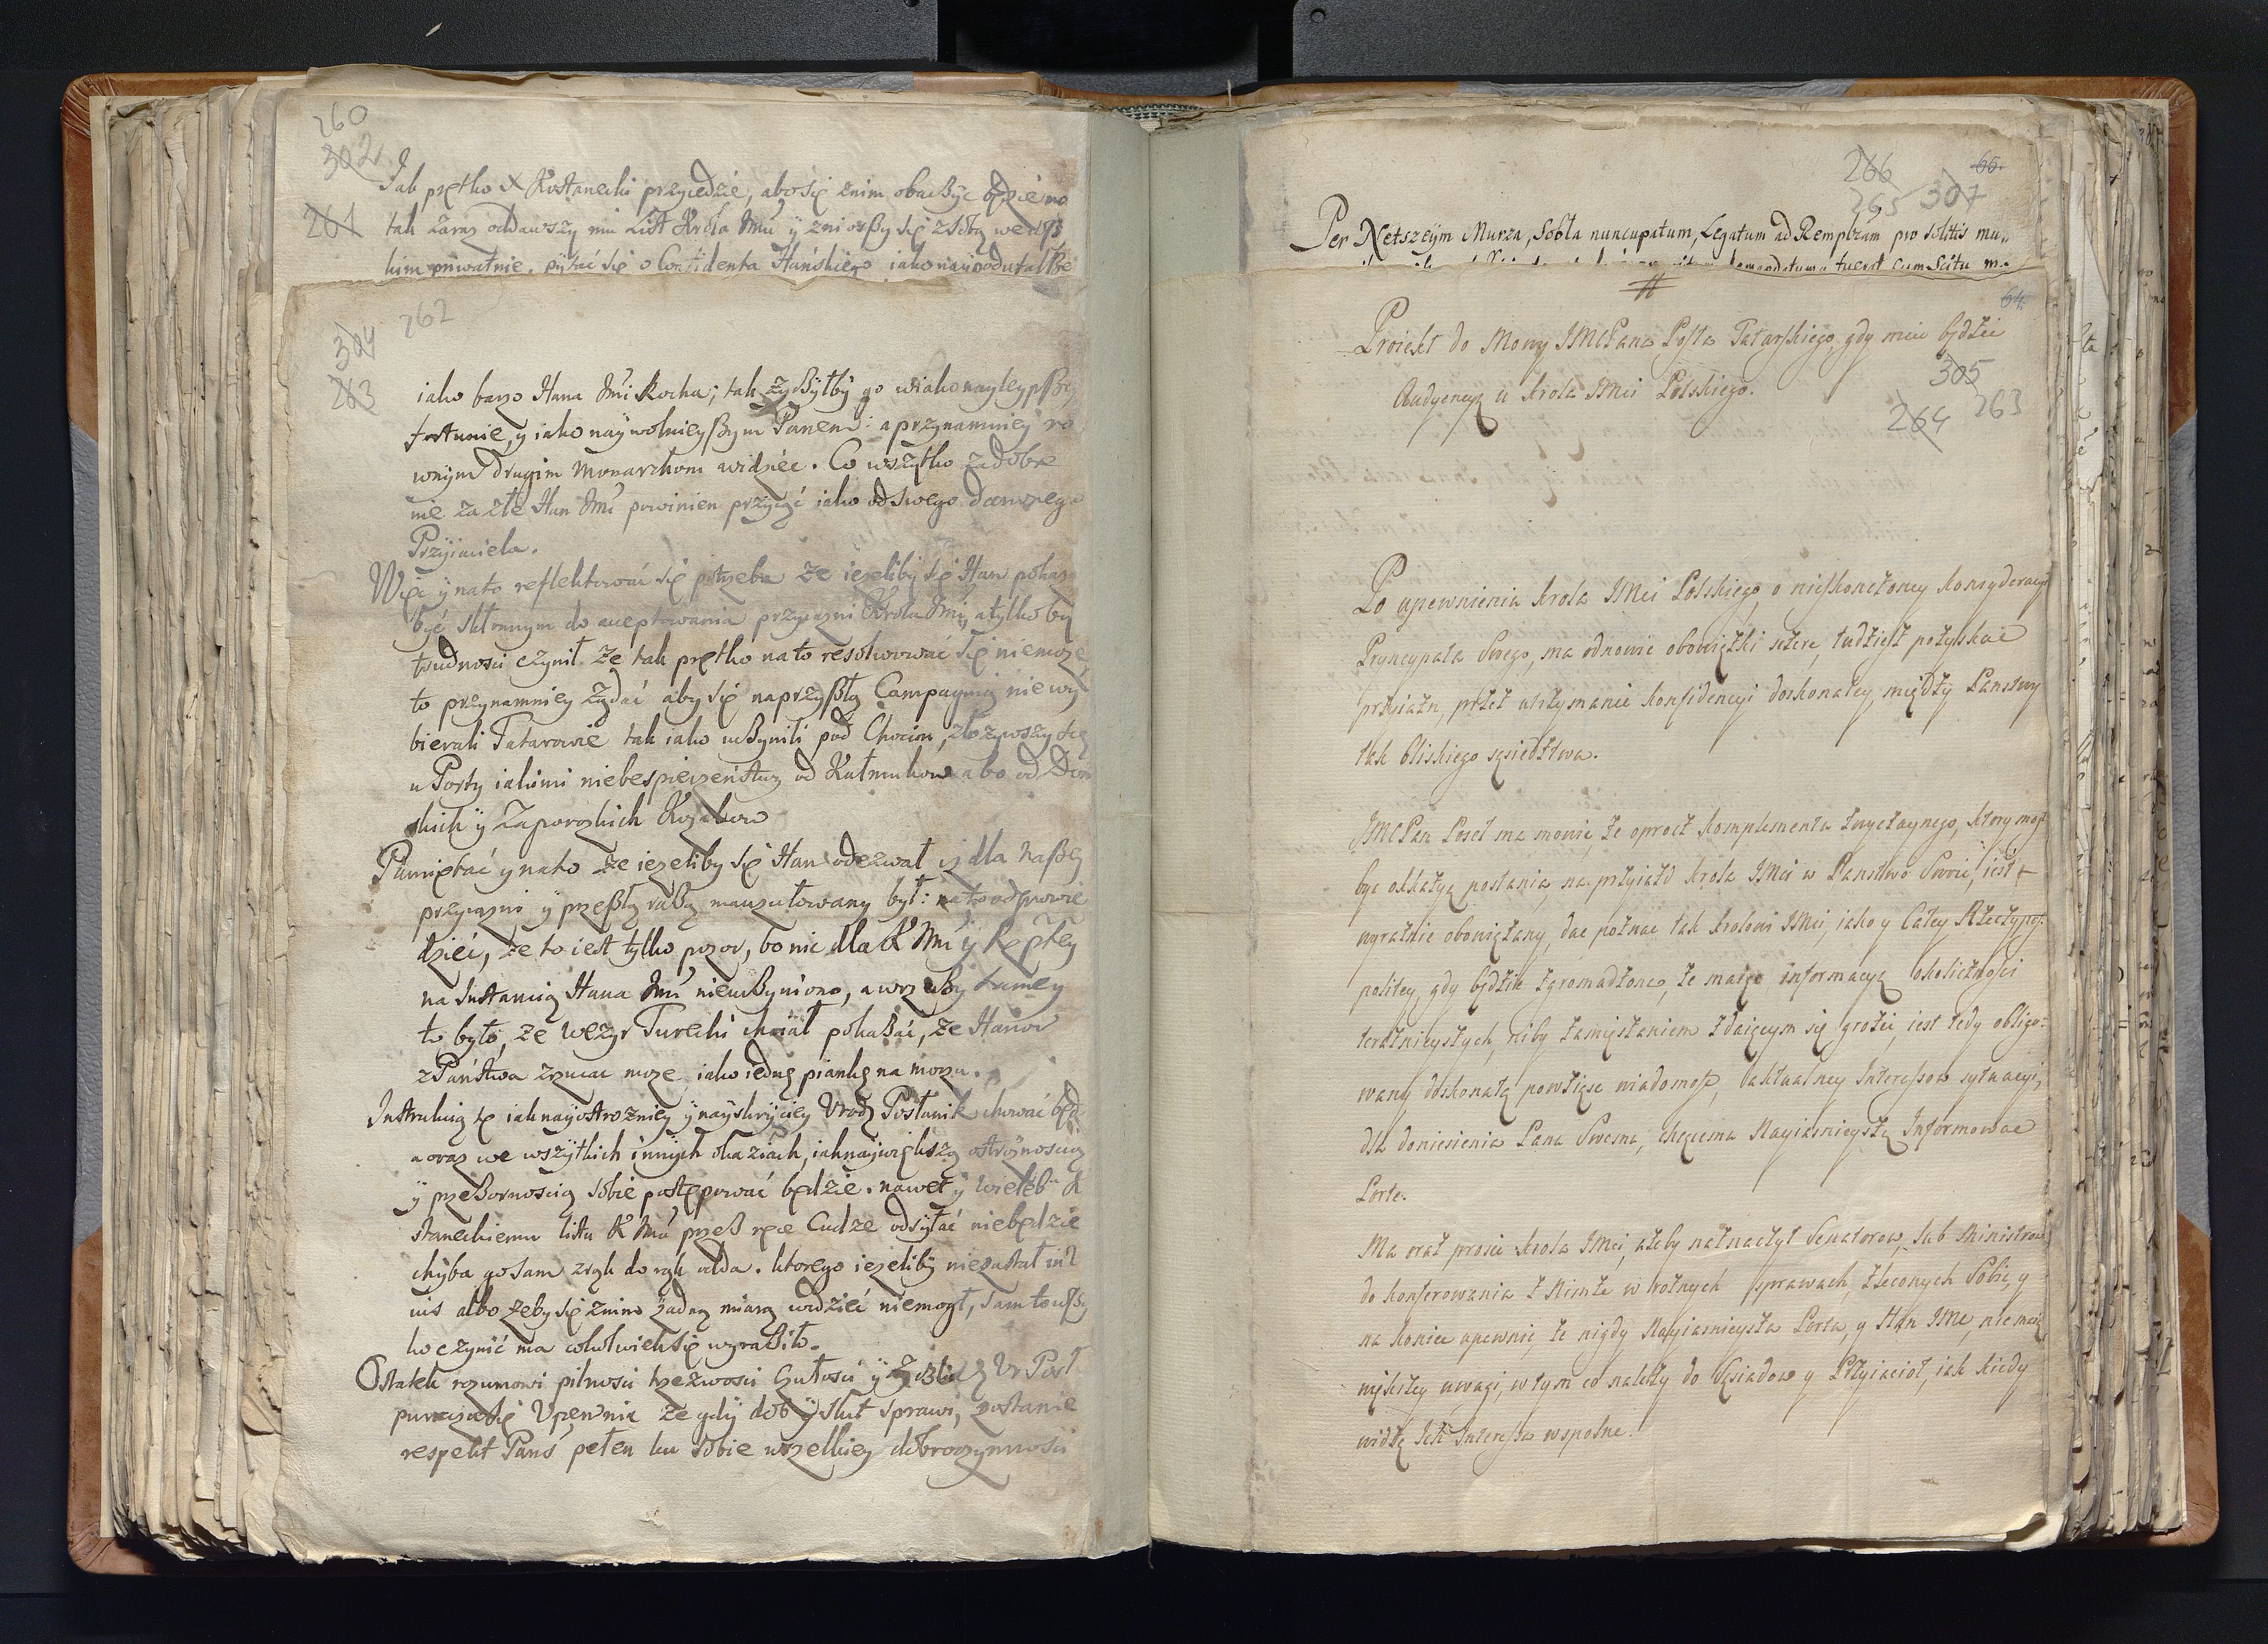 260
302
Jak prętko X Kostanecki przyiedzie, abo się znim obaczyć będzie
261
tak zaraz oddawszy mu List Krola Jmći ÿ zniozszy się z sobą
kim prywatnie. pytać się o Confidenta Hańskiego iako
262
304
263
iako barzo Hana Jmći kocha; tak życzyłby go w iako naylepszey
fortunie, y iako naÿwolnieyszym Panem: a przynamnieÿ ro
wnÿm drugim Monarchom widziec. Co wszytko za dobre
nie za złe Han Jmć powinien przyiąć iako od swego dawnego
Przÿiaciela.
Więc ÿ na to reflektować się potrzeba że ieżeliby się Han pokaza
być skłonnym do acceptowania przyiazni Krola Jmći, a tylko by
trudnosci czynił. Ze tak prętko na to resolwować się niemoże
to przynamniey żądać aby się na przyszłą Campanią nie wÿ
bierali Tatarowie tak iako uczynili pod Chocim, złożywszy się
u Porty iakimi niebespieczeństwy od Kałmukow abo od Don
skich ÿ Zaporozkich Kozakow
Pamiętać y na to że ieżeliby się Han odezwał iż dla naszey
przyiazni ÿ przeszłą razą mansulowany był: na to odpowie
dzieć, że to iest tylko pozor, bo nic dla K Jmći ÿ Rzptey
na Instancią Hana Jmći nieuczyniono, a w rzeczy samey
to było, ze Wezyr Turecki chciał pokazać, ze Hanow
z Państwa zrzucac moze iako iedną piankę na morzu.
Instrukcią tę iak naÿostrozniey ÿ nayskryciey Urodz Posłanik chować będz
a oraz we wszÿtkich innÿch okaziach, iak naÿwiększą ostrożnoscią
ÿ przezornoscią sobie postępować będzie. nawet ÿ Wieleb K
staneckiemu listu K Jmći przez ręce Cudze odsyłać niebędzie
chÿba go sam z rąk do rąk odda. ktorego ieżeliby niezastał in
uis albo zeby się znim żadną miarą widzieć niemogł, sam to wszy
ko czynić ma cokolwiek się wyraziło.
Ostatek rozumowi pilnosci trzezwosci Czułosci ÿ Ur Posł
Upewnia ze gdÿ dob sprawi, zostanie
respekt Pans pełen ku sobie wszelkiey dobroczynnosci
266 66.
265 307
Per Netszeijm Murza, Sobla nuncupatum, Legatum ad Rempbcam pro solitis mu
cum Scitu
64.
Proiekt do Mowy JMCPana Posła Tatarskiego, gdy mieć będzie
305
Audyencyą u Krola JMci Polskiego.
264 263
Po upewnieniu Krola JMci Polskiego, o nieskonczoney Konsyderacyi
Pryncypała Swego, ma odnowic obowiązki szczere, tudziesz pozyskac
przyiazn, przez utrzymanie Konfidencyi doskonałey, między Panstwy
tak bliskiego sąsiedztwa.
JMCPan Poseł ma mowić, ze oprocz komplementu zwyczaynego, ktory
byc okazyą posłania, na przyiazd Krola JMci w Panstwo Swoie, iest
wyraznie obowiązany, dac poznac tak Krolowi JMci, iako y Całey Rzeczypos:
politey, gdy będzie zgromadzona, ze maiąc informacyą okolicznosci
teraznieyszych, niby zamięszaniem zdaiącym się grozic, iest tedy obligo:
wany doskonałą powziąsc wiadomosc, o aktualney Interessow sytuacyi,
dla doniesienia Panu Swemu, chcącemu Nayiasnieyszą Informowac
Portę.
Ma oraz prosic Krola JMci, azeby naznaczył Senatorow, lub Ministrow
do konferowania z Nimże w roznych sprawach, zleconych Sobie, y
na koniec upewnic, ze nigdy Nayiasnieysza Porta, y Han JMc, nie mieli
większey uwagi, w tym co nalezy do Sąsiadow y Przyiacioł, iak kiedy
widzą Ich Interessa wspolne.